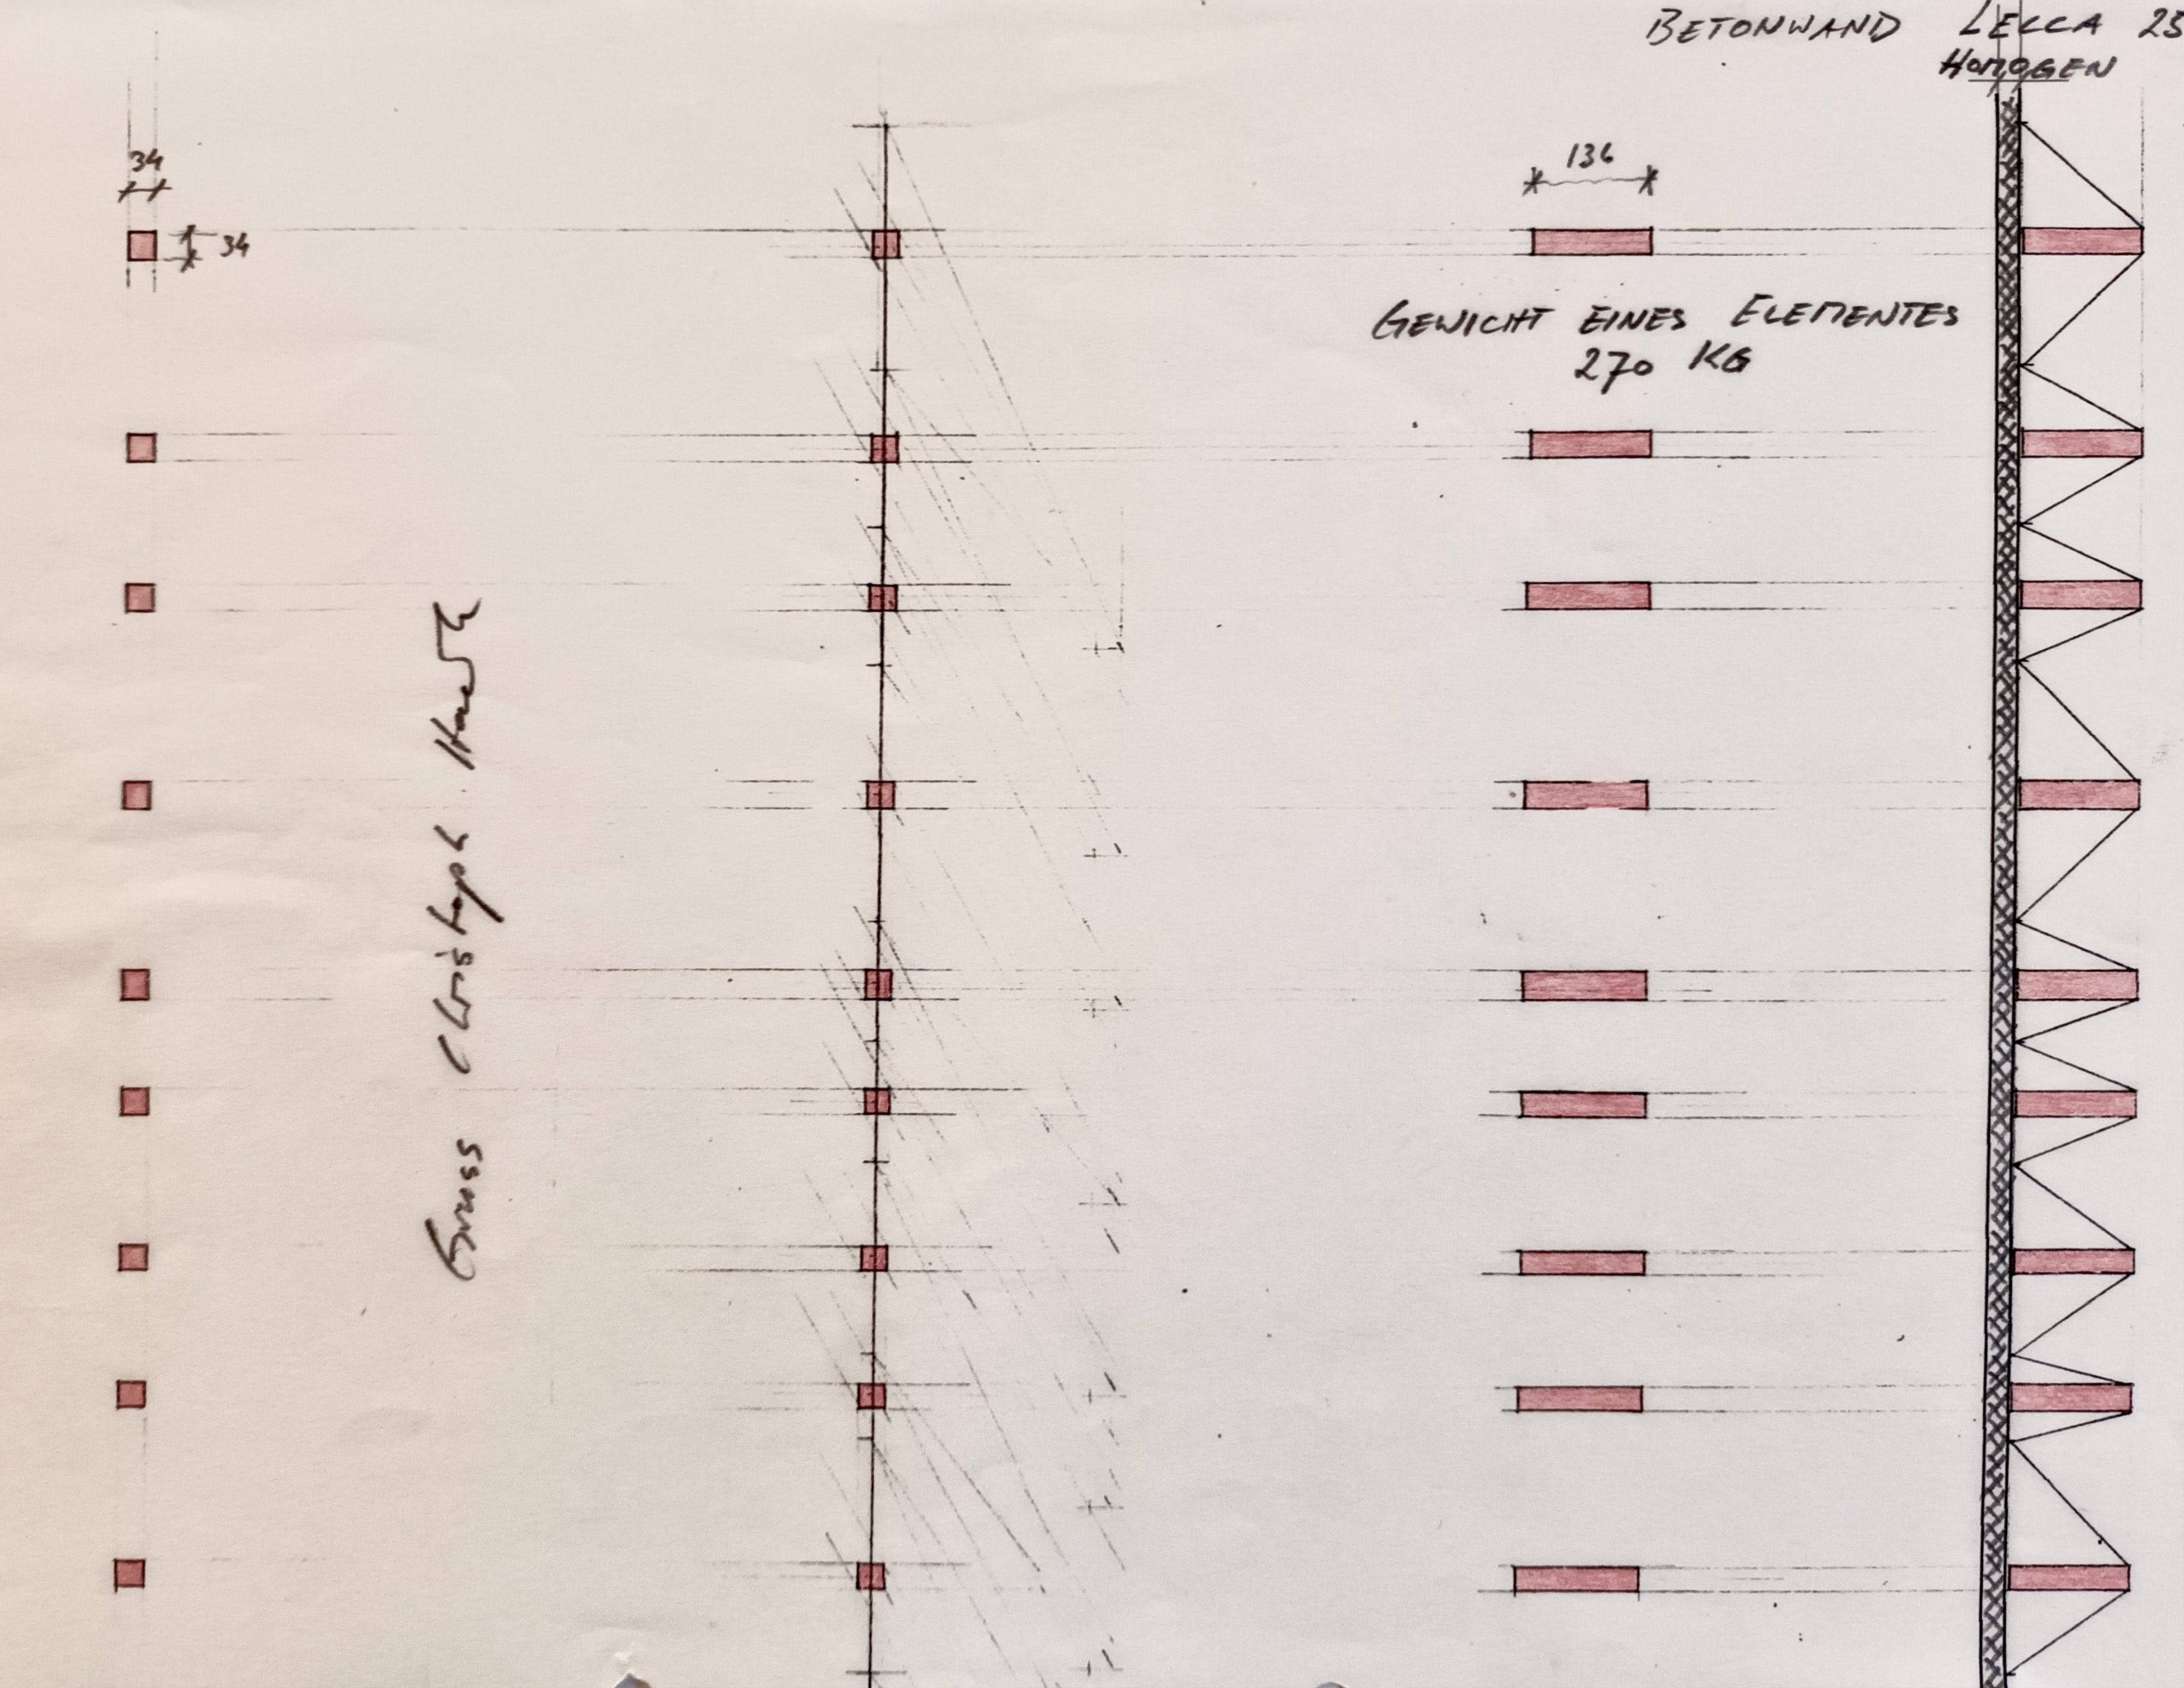 BETONWAND LECCA 25
HOMOGEN
34
34
136
GEWICHT EINES ELEMENTES
270 KG
Gruss Christoph